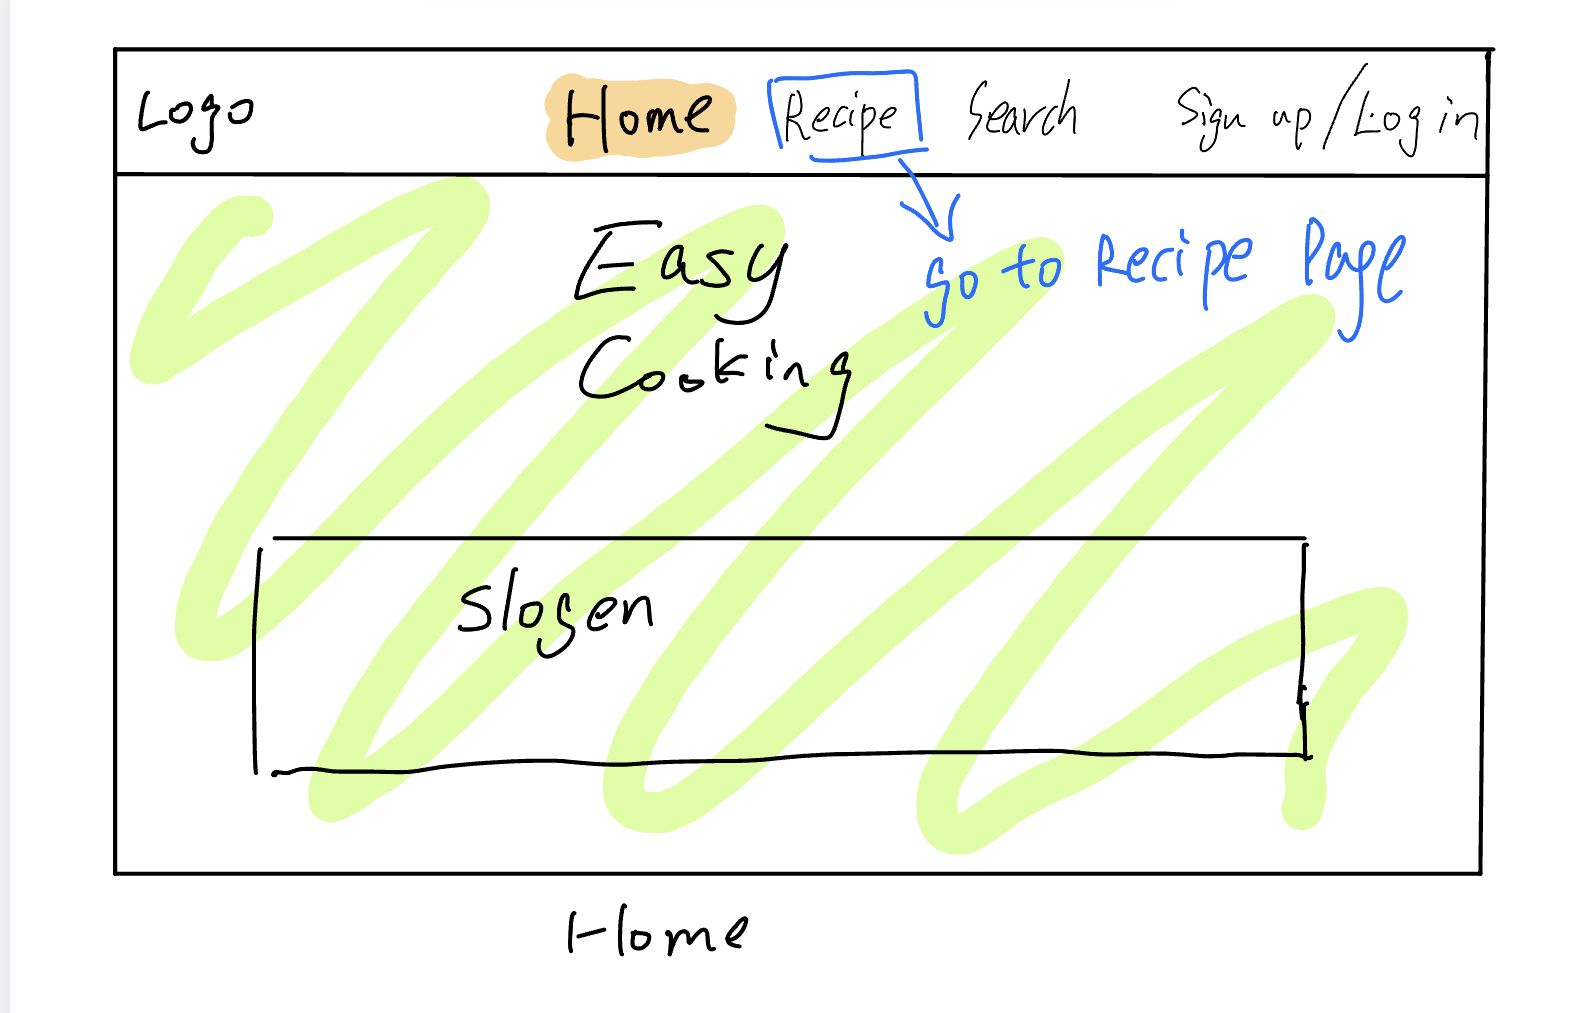 Logo Home Recipe Search Sign up/Log in
Easy
go to Recipe Page
Cooking
Slogen
Home